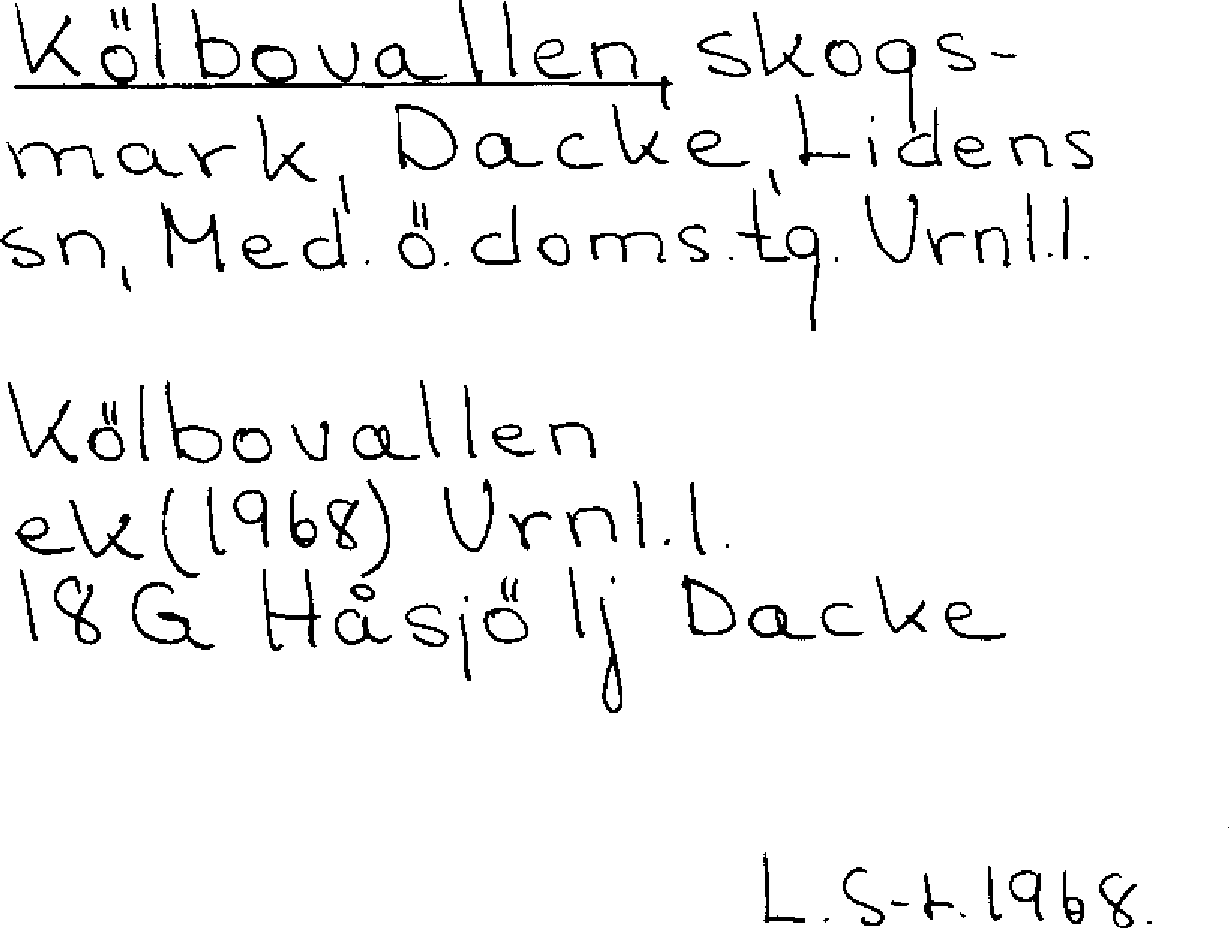 Kölbovallen, skogs-
mark, Dacke, Lidens
sn, Med. ö. doms.tg. Vrnl.l.
Kölbovallen
ek (1968) Vrnl.l.
18 G Håsjö lj Dacke
L. S-t. 1968.